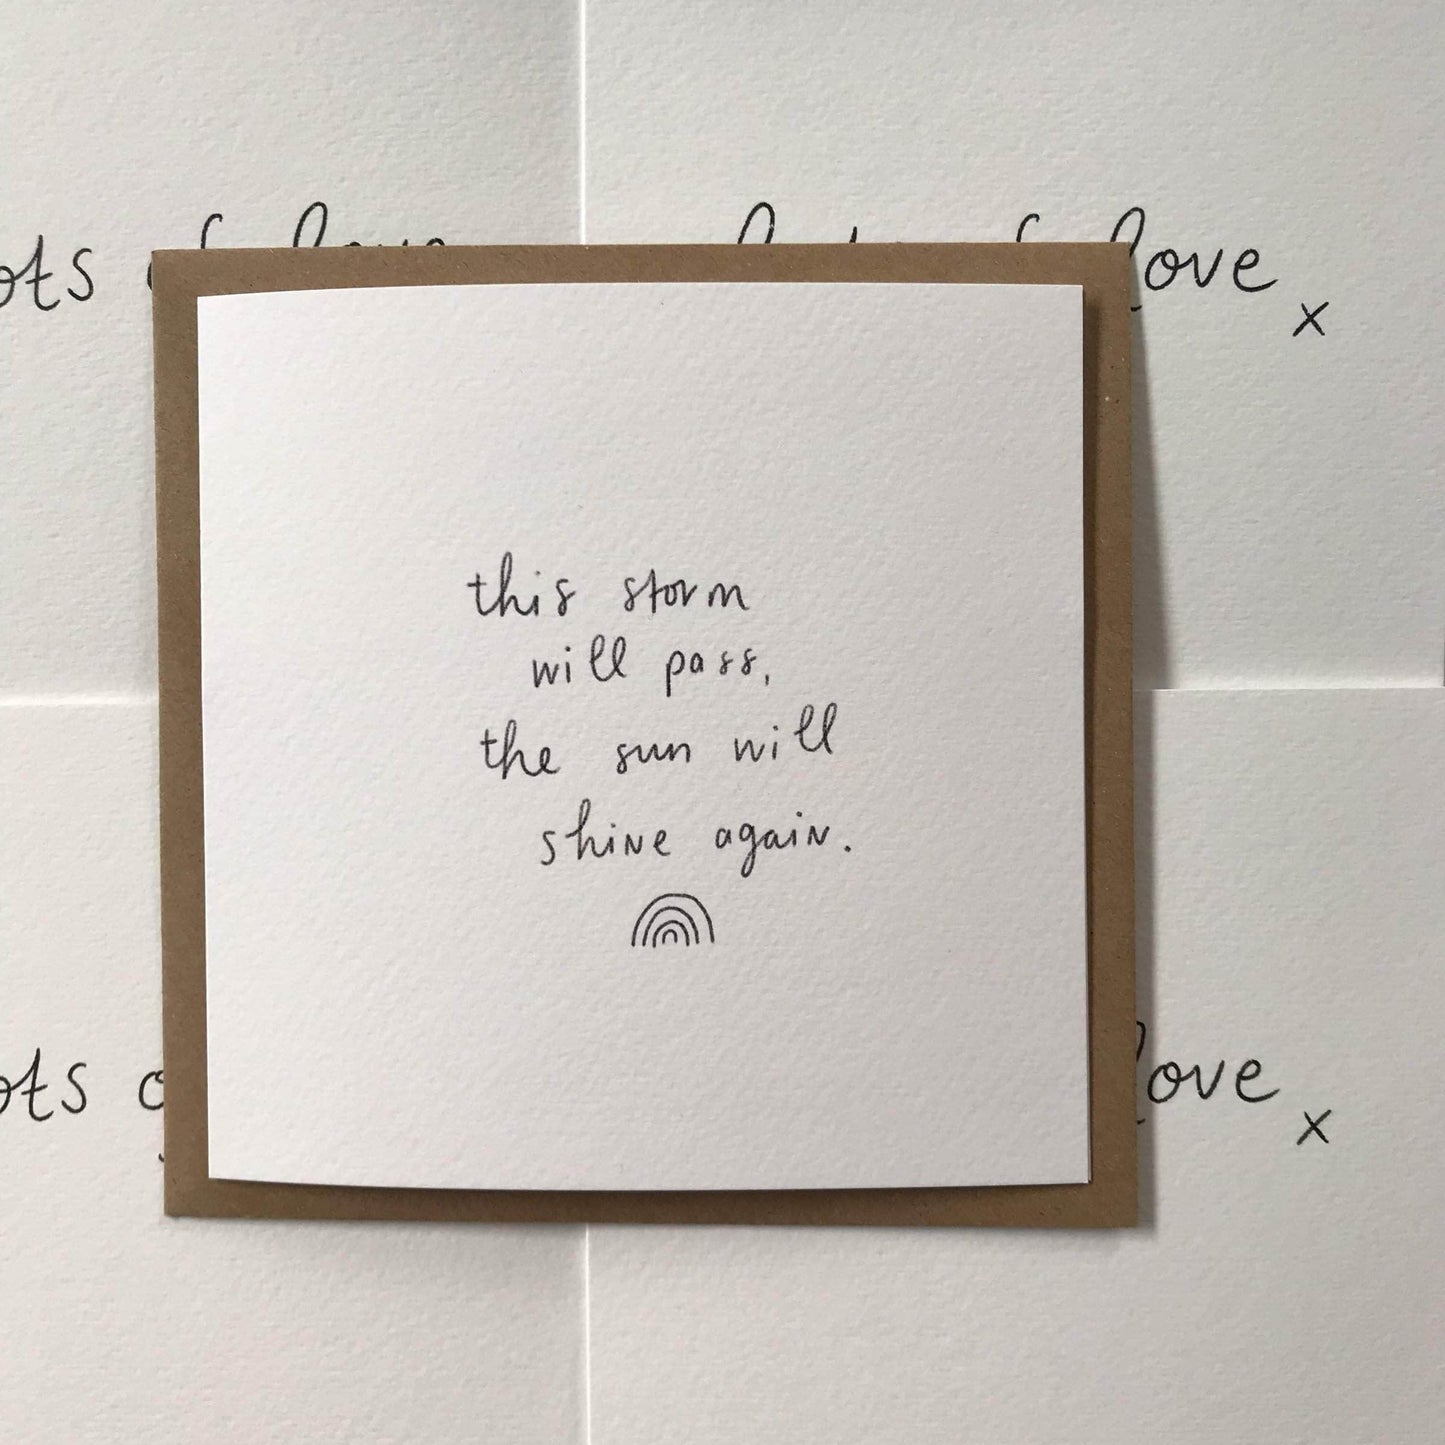 ots of love
lots of love
x
this storm
will pass,
the sun will
shine again.
ots
love
x